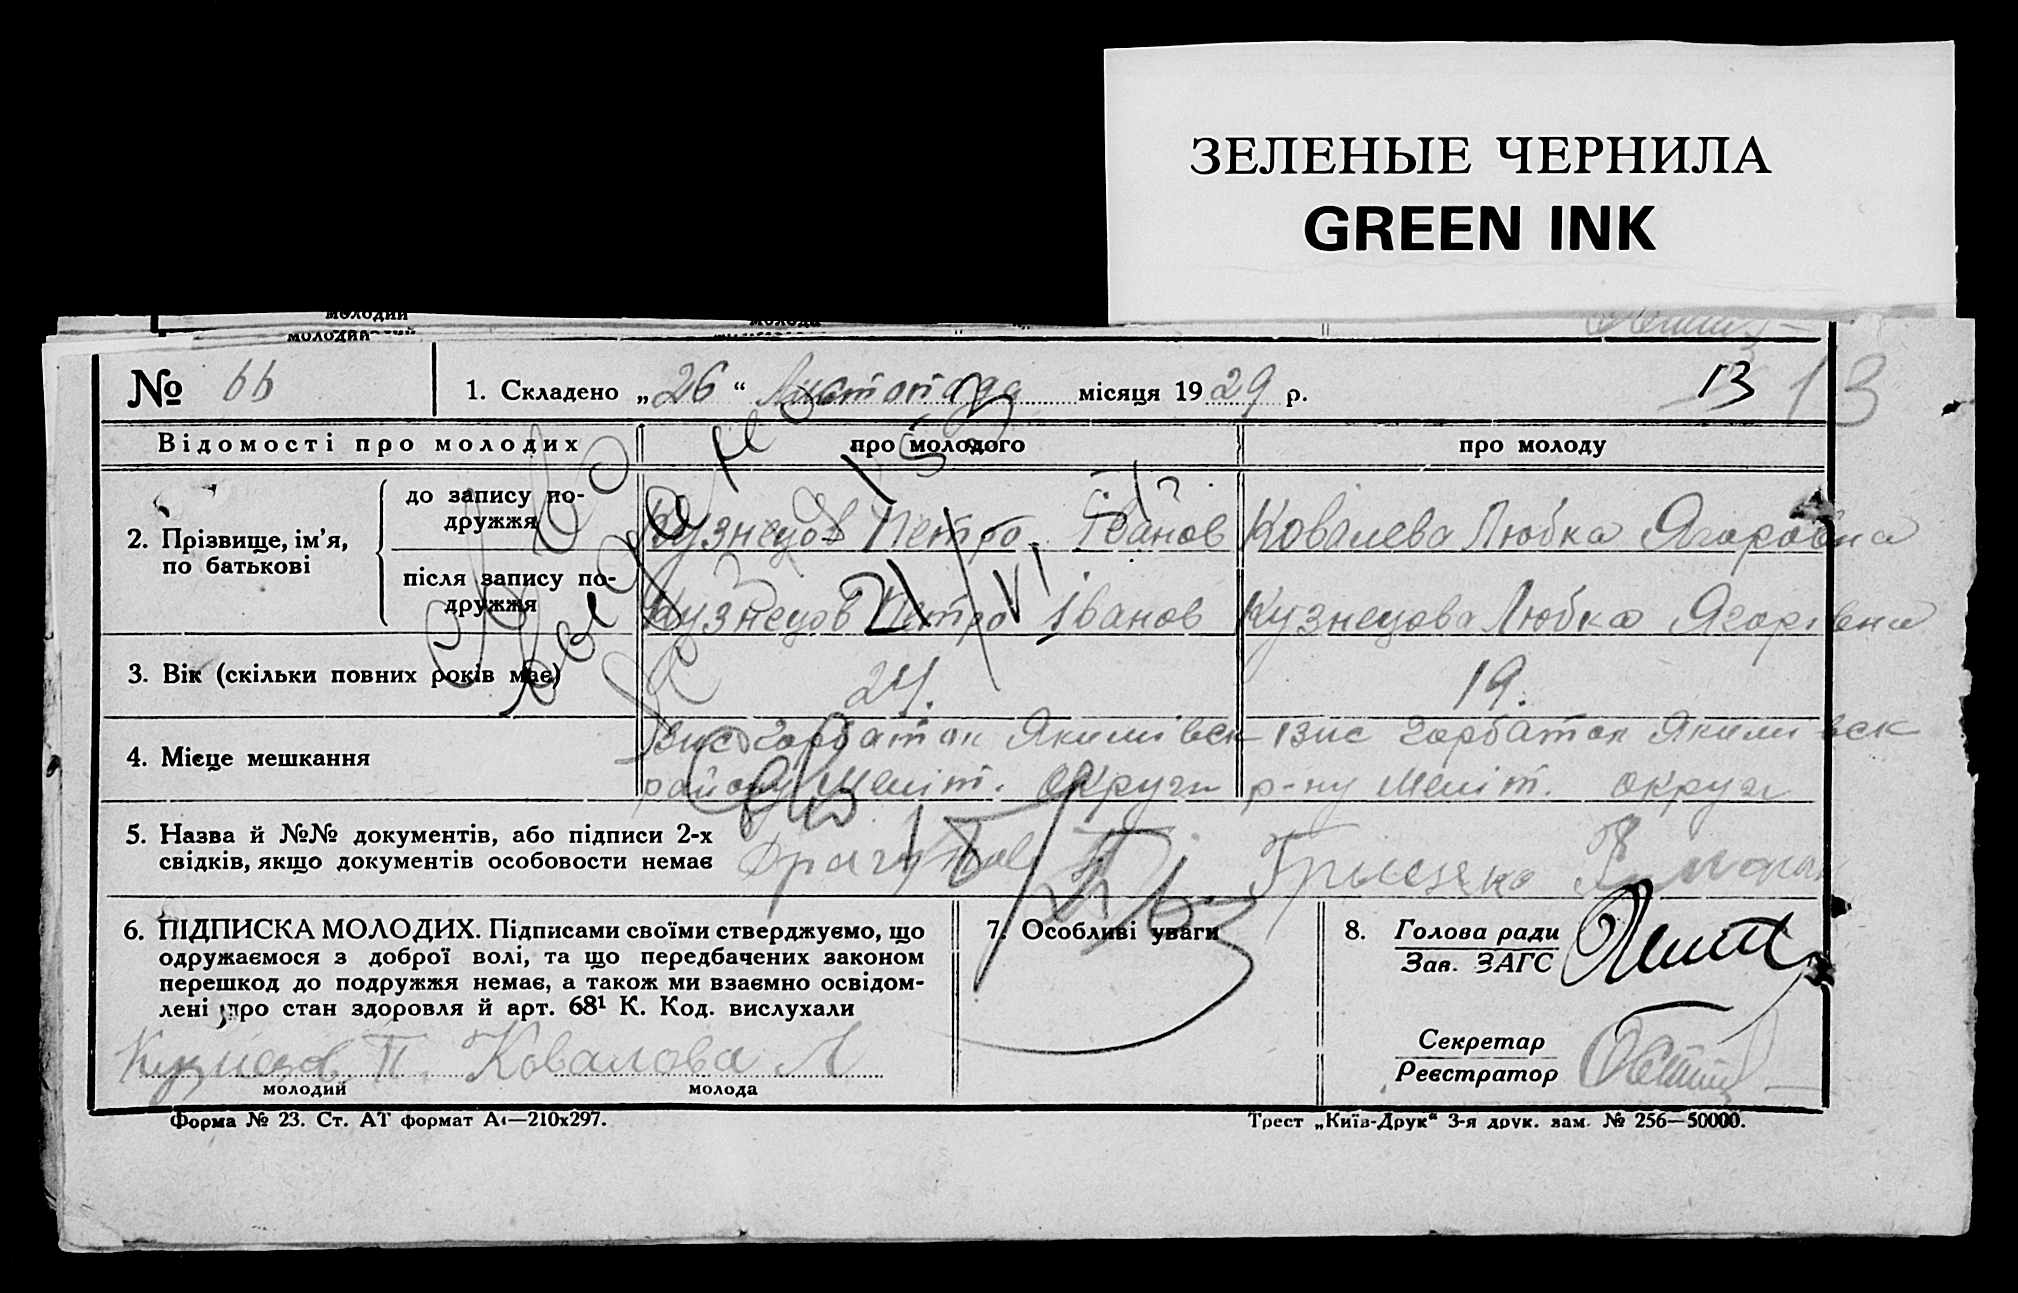 ЗЕЛЕНЫЕ ЧЕРНИЛА
GREEN INK
молодий
молодий
№ 66 1. Складено „26“ Листопада місяця 1929 р. 13 13
Відомості про молодих про молодого про молоду
2. Прізвище, ім’я, по батькові
до запису подружжя Кузнецов Петро Іванов Ковалева Любка Ягоровна
після запису подружжя Кузнецов Петро Іванов Кузнецова Любка Ягорівна
21/VI
3. Вік (скільки повних років має) 24. 19.
4. Місце мешкання
Горбаток Якимівск Горбаток Якимівск
району Меліт. округи р-ну Меліт. округи
5. Назва й №№ документів, або підписи 2-х
свідків, якщо документів особовости немає Грыценко
6. ПІДПИСКА МОЛОДИХ. Підписами своїми стверджуємо, що
одружаємося з доброї волі, та що передбачених законом
перешкод до подружжя немає, а також ми взаємно освідом-
лені про стан здоровля й арт. 68¹ К. Код. вислухали
Кузнецов П. Ковалова Л
молодий молода
7. Особливі уваги
8. Голова ради
Зав. ЗАГС
Секретар
Реєстратор
Форма № 23. Ст. АТ формат А4—210х297.
Трест „Київ-Друк“ 3-я друк. зам. № 256—50000.